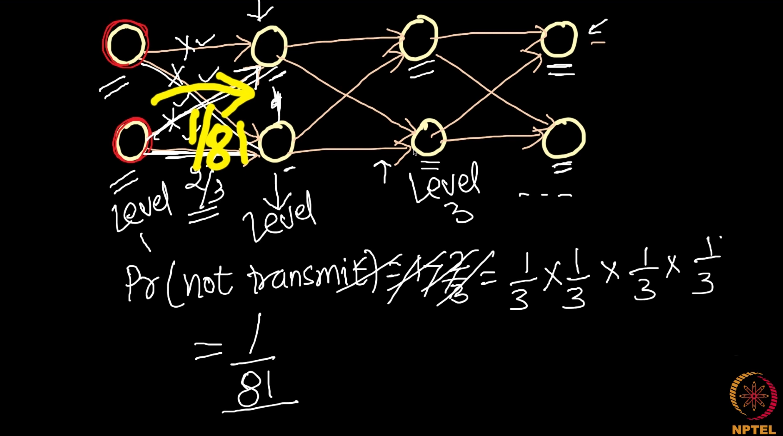 1/81
2/3
Level
1
Level
Level
3
---
Pr(not transmit) = 1 - 2/3 = 1/3 × 1/3 × 1/3 × 1/3
= 1/81
NPTEL